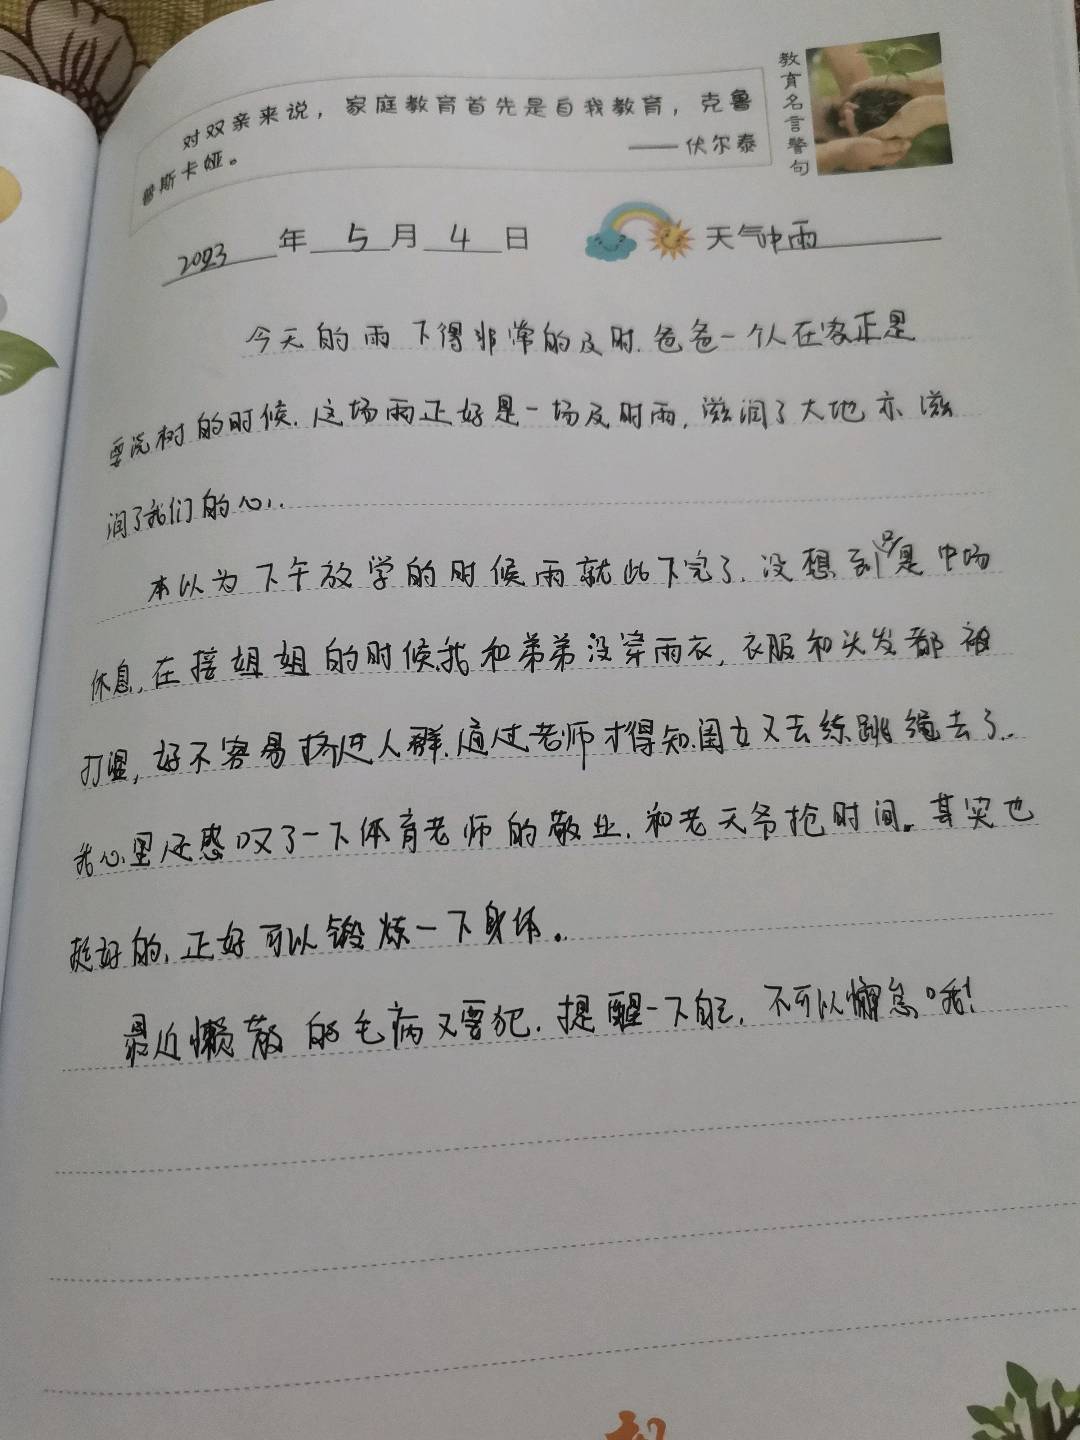 对双亲来说，家庭教育首先是自我教育，克鲁
普斯卡娅。
——伏尔泰
教育名言警句
2023年5月4日 天气中雨
今天的雨下得非常的及时.爸爸一个人在家正是
要浇树的时候.这场雨正好是一场及时雨,滋润了大地亦滋
润了我们的心..
本以为下午放学的时候雨就此下完了.没想到只是中场
休息,在接姐姐的时候,我和弟弟没穿雨衣,衣服和头发都被
打湿,好不容易挤进人群.通过老师才得知.闺女又去练跳绳去了..
我心里还感叹了一下体育老师的敬业.和老天爷抢时间。其实也
挺好的,正好可以锻炼一下身体。
最近懒散的毛病又要犯.提醒一下自己,不可以懒怠哦!